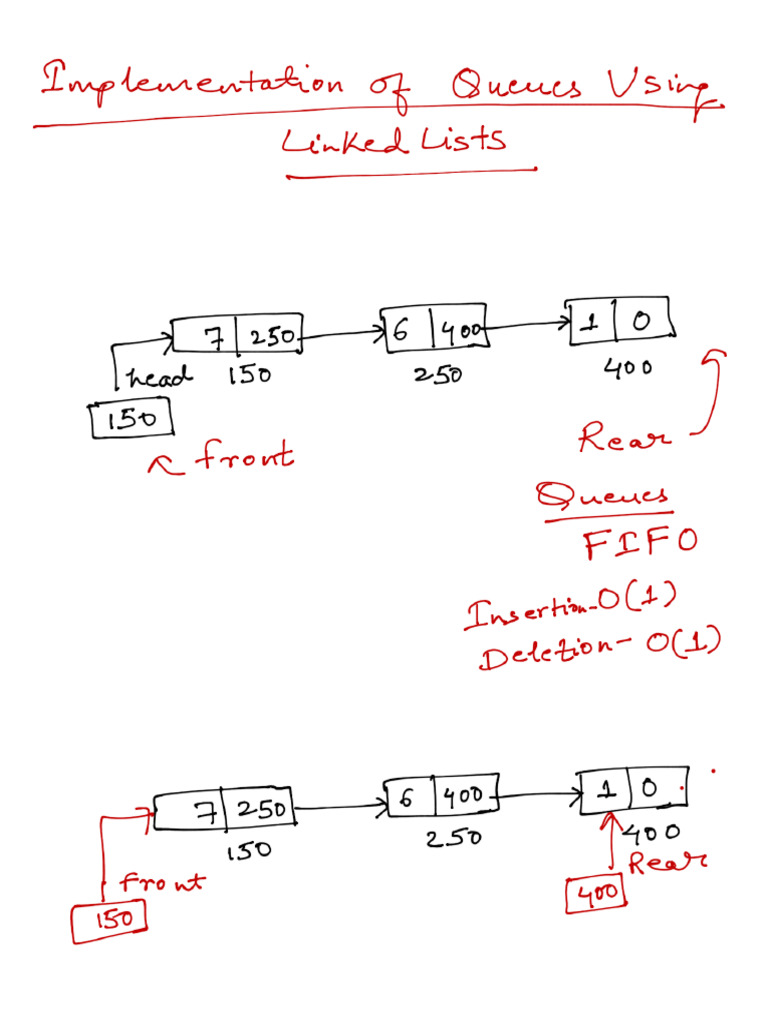 Implementation of Queues Using
Linked Lists
7 250 6 400 1 0
head 150 250 400
150
front
Rear
Queues
FIFO
Insertion-O(1)
Deletion- O(1)
7 250 6 400 1 0
150 250 400
front Rear
150 400